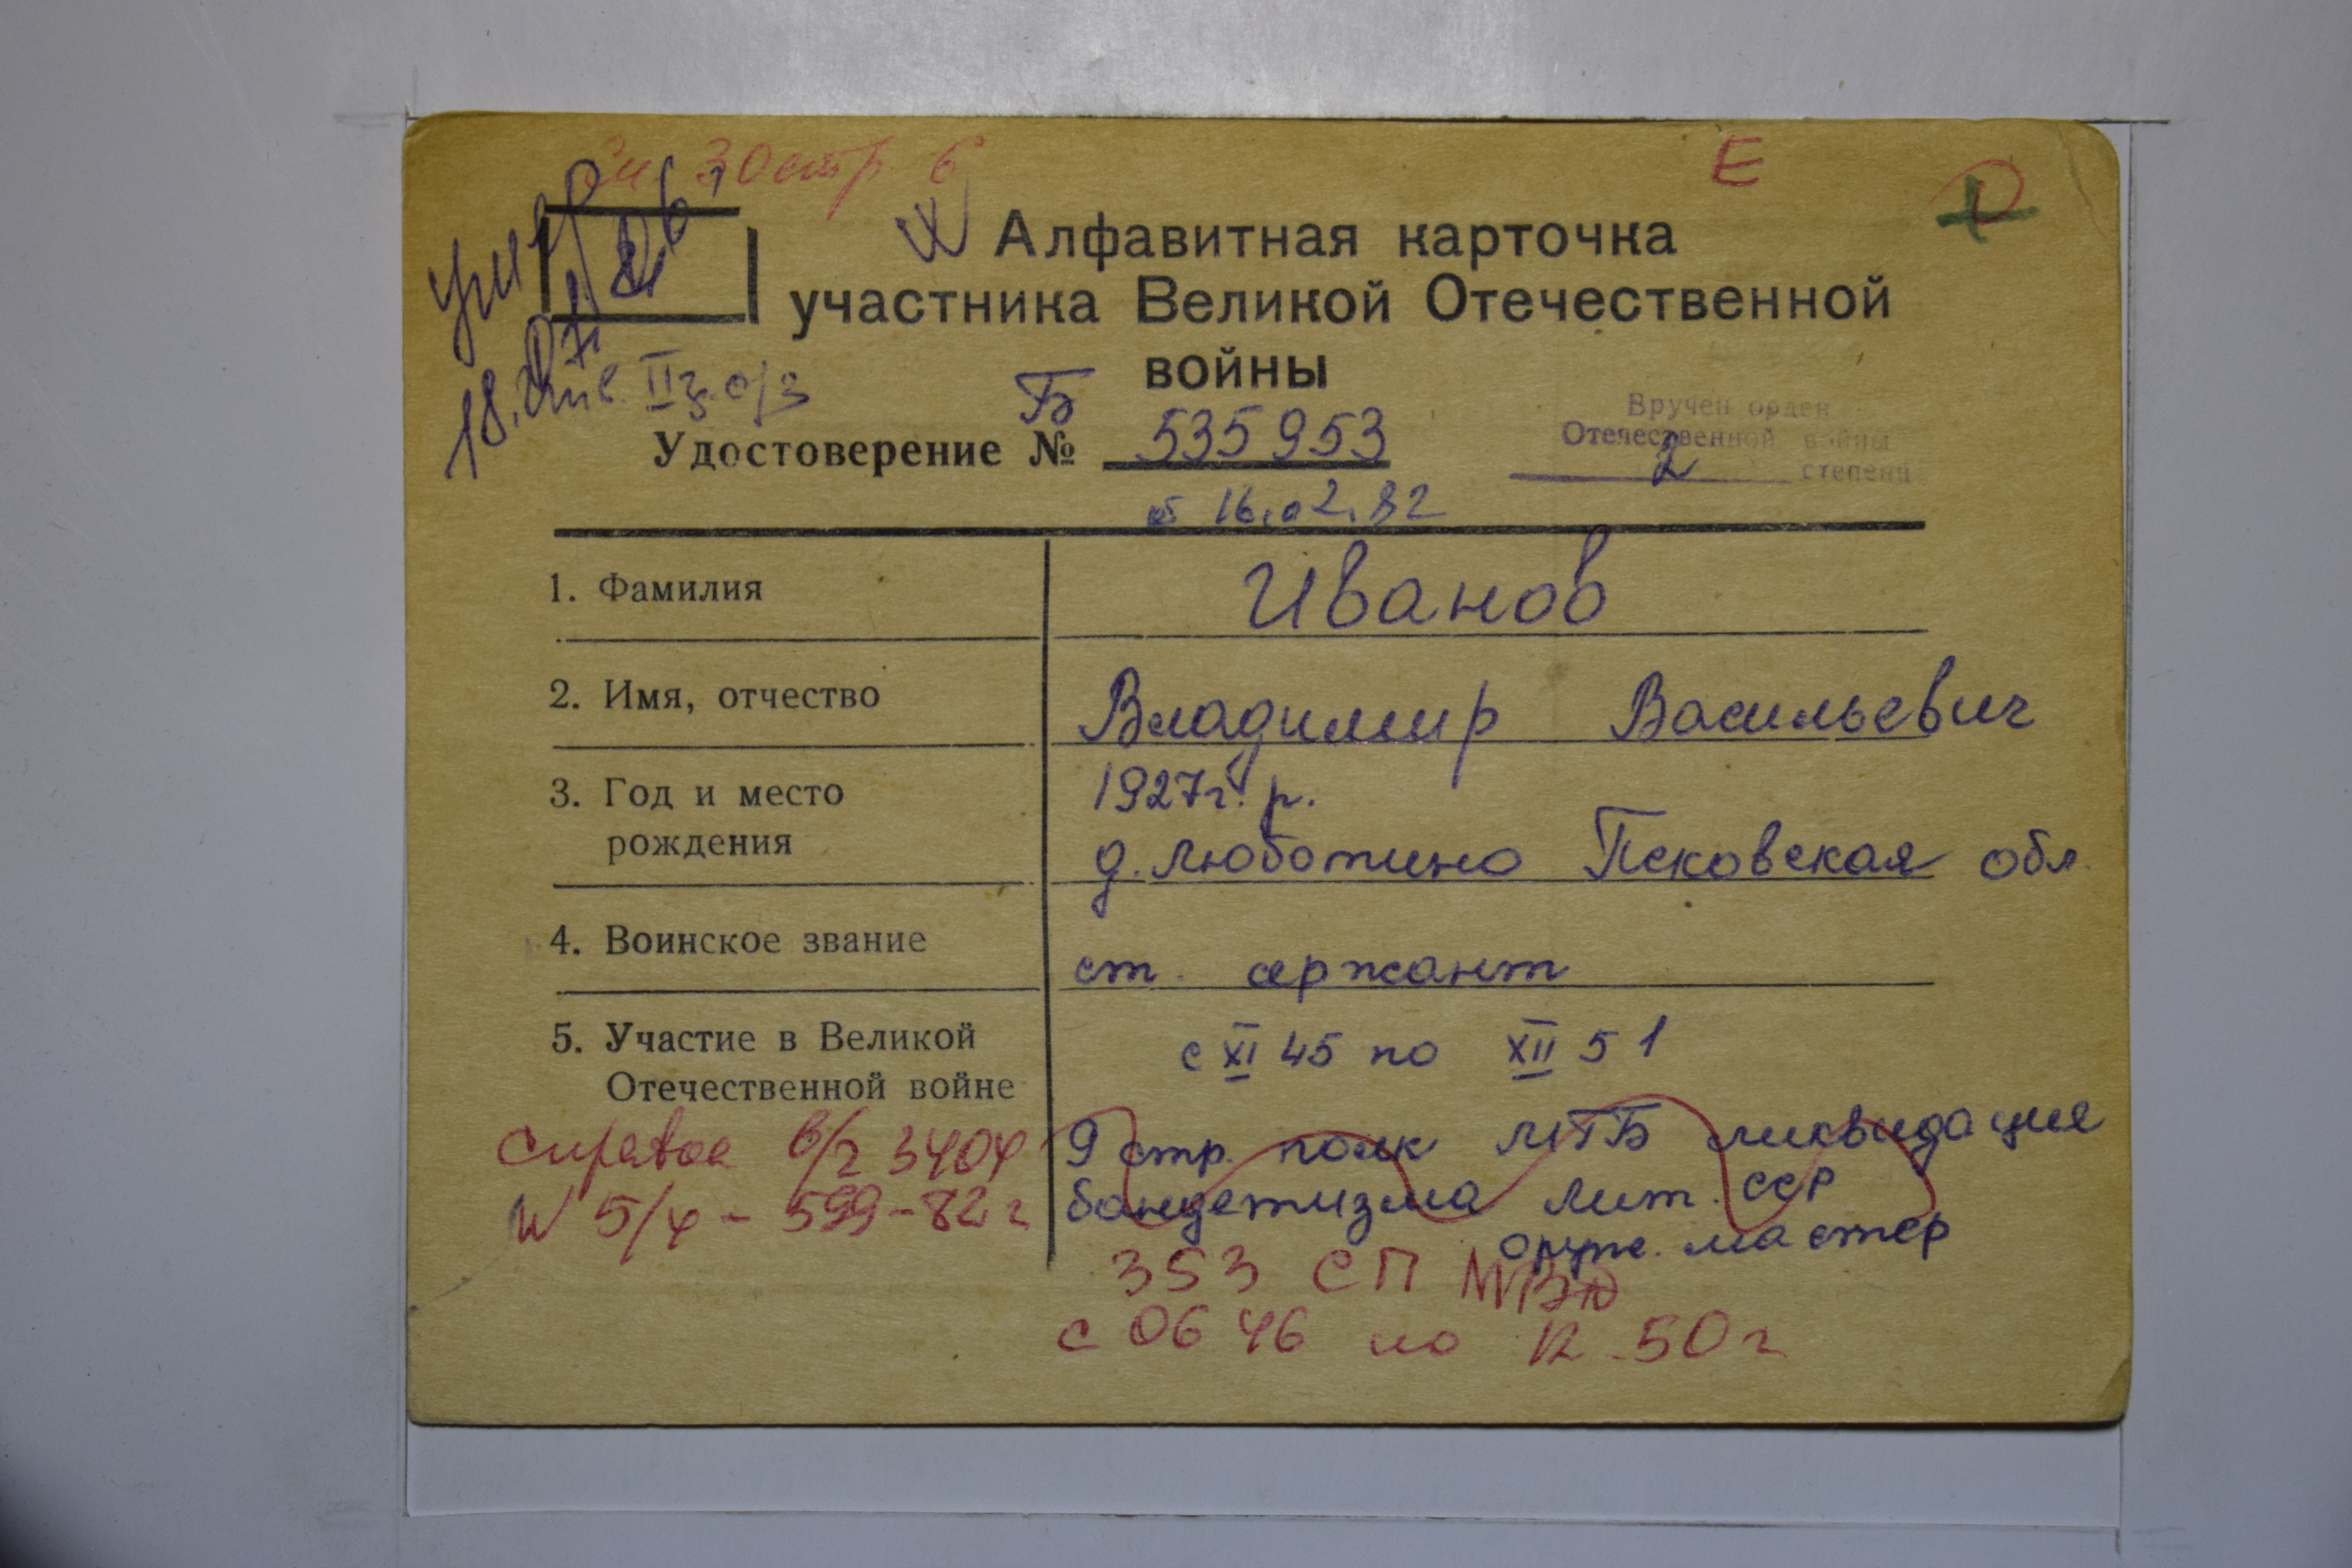 30 стр 6
Е
Алфавитная карточка
участника Великой Отечественной
войны
18.07.
инв. II гр. о/з
Удостоверение № Б 535953
от 16.02.82
Вручен орден
Отечественной войны
2 степени
1. Фамилия
Иванов
2. Имя, отчество
Владимир Васильевич
3. Год и место
рождения
1927г. р.
д. Люботино Псковская обл
4. Воинское звание
ст. сержант
5. Участие в Великой
Отечественной войне
с XI 45 по XII 51
9 стр. полк МГБ ликвидация
бандетизма Лит. ССР
оруж. мастер
справка в/ч 3404
N 5/4 - 599-82 г
353 СП МВД
с 06 46 по 12.50 г